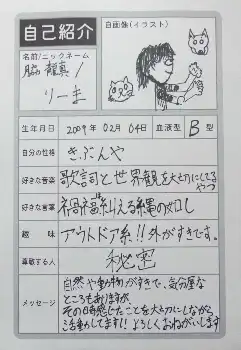 自己紹介
自画像(イラスト)
名前/ニックネーム
脇 龍真/
りーま
生年月日
2009年 02月 04日
血液型
B型
自分の性格
きぶんや
好きな音楽
歌詞と世界観を大切にしてる
やつ
好きな言葉
禍福は糾える縄の如し
趣味
アウトドア系!!外がすきです。
尊敬する人
秘密
メッセージ
自然や動物がすきで、気分屋な
ところもありますが、
その時感じたことを大切にしながら
活動してます!!よろしくおねがいします